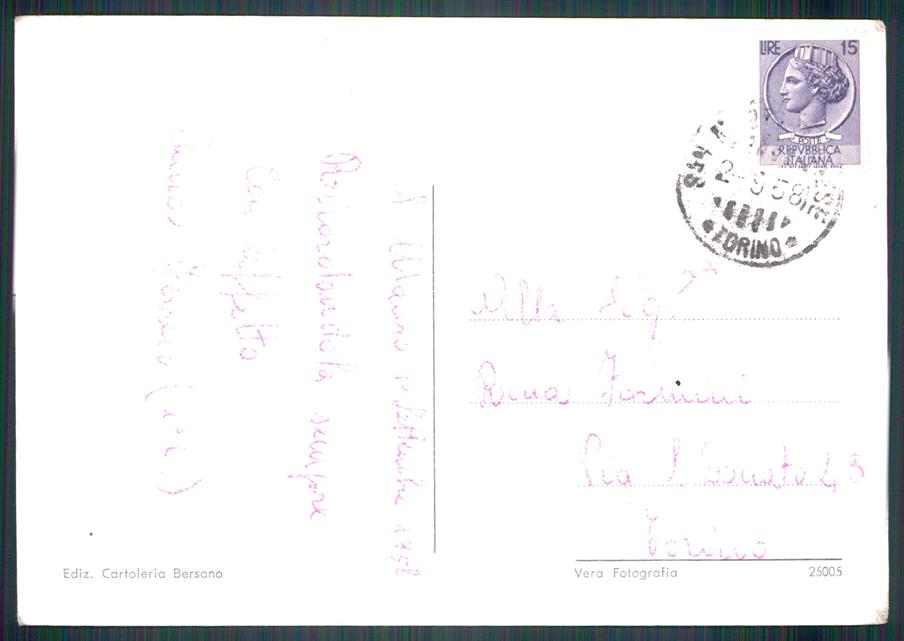 LIRE 15
POSTE
REPVBBLICA
ITALIANA
2-9 58
TORINO
S. Mauro 1 Settembre 1958
Ricordandola sempre
Con affetto
Alla Sig.na
Rina
Via S. Donato 43
Torino
Ediz. Cartoleria Bersano
Vera Fotografia 25005